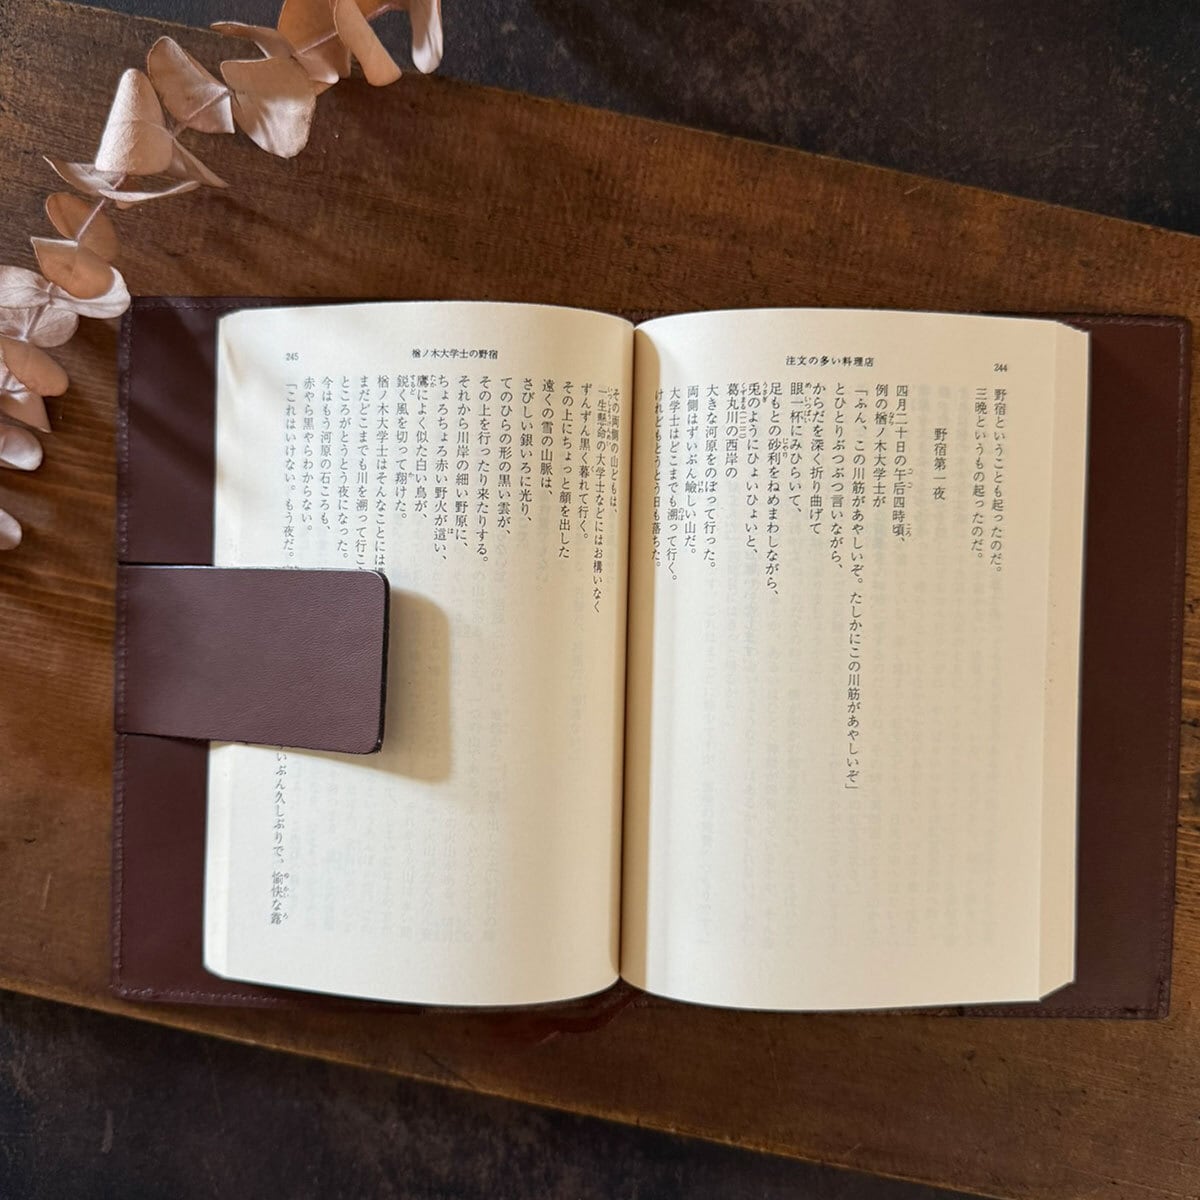 244
注文の多い料理店
野宿ということも起ったのだ。
三晩というもの起ったのだ。
野宿第一夜
四月二十日の午后四時頃、
例の楢ノ木大学士が
「ふん、この川筋があやしいぞ。たしかにこの川筋があやしいぞ」
とひとりぶつぶつ言いながら、
からだを深く折り曲げて
眼一杯にみひらいて、
足もとの砂利をねめまわしながら、
兎のようにひょいひょいと、
葛丸川の西岸の
大きな河原をのぼって行った。
両側はずいぶん嶮しい山だ。
大学士はどこまでも溯って行く。
けれどもとうとう日も落ちた。
245
楢ノ木大学士の野宿
その両側の山どもは、
一生懸命の大学士などにはお構いなく
ずんずん黒く暮れて行く。
その上にちょっと顔を出した
遠くの雪の山脈は、
さびしい銀いろに光り、
てのひらの形の黒い雲が、
その上を行ったり来たりする。
それから川岸の細い野原に、
ちょろちょろ赤い野火が這い、
鷹によく似た白い鳥が、
鋭く風を切って翔けた。
楢ノ木大学士はそんなことには
まだどこまでも川を溯って行こ
ところがとうとう夜になった。
今はもう河原の石ころも、
赤やら黒やらわからない。
「これはいけない。もう夜だ。
いぶん久しぶりで、愉快な露